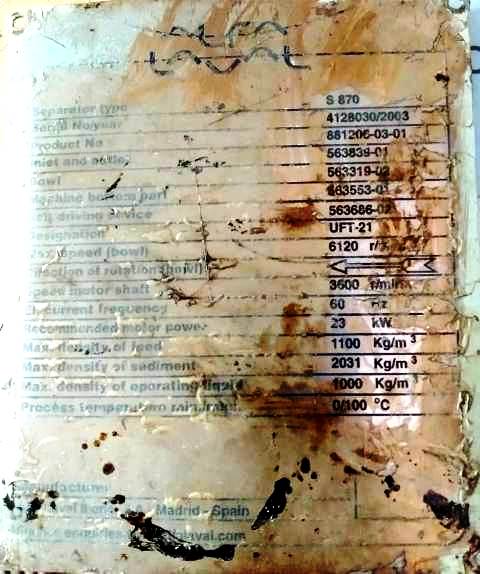 ALFA
LAVAL
Separator type S 870
Serial No/year 4128030/2003
Product No 881206-03-01
Inlet and outlet 563839-01
Bowl 563319-02
Machine bottom part 563553-01
Belt driving device 563686-02
Designation UFT-21
Max. speed (bowl) 6120 r/
Direction of rotation (bowl)
Speed motor shaft 3600 r/min
El. current frequency 60 Hz
Recommended motor power 23 kW
Max. density of feed 1100 Kg/m³
Max. density of sediment 2031 Kg/m³
Max. density of operating liquid 1000 Kg/m
Process temperature min./max. 0/100 °C
Manufacturer
Madrid - Spain
enquiries
laval.com